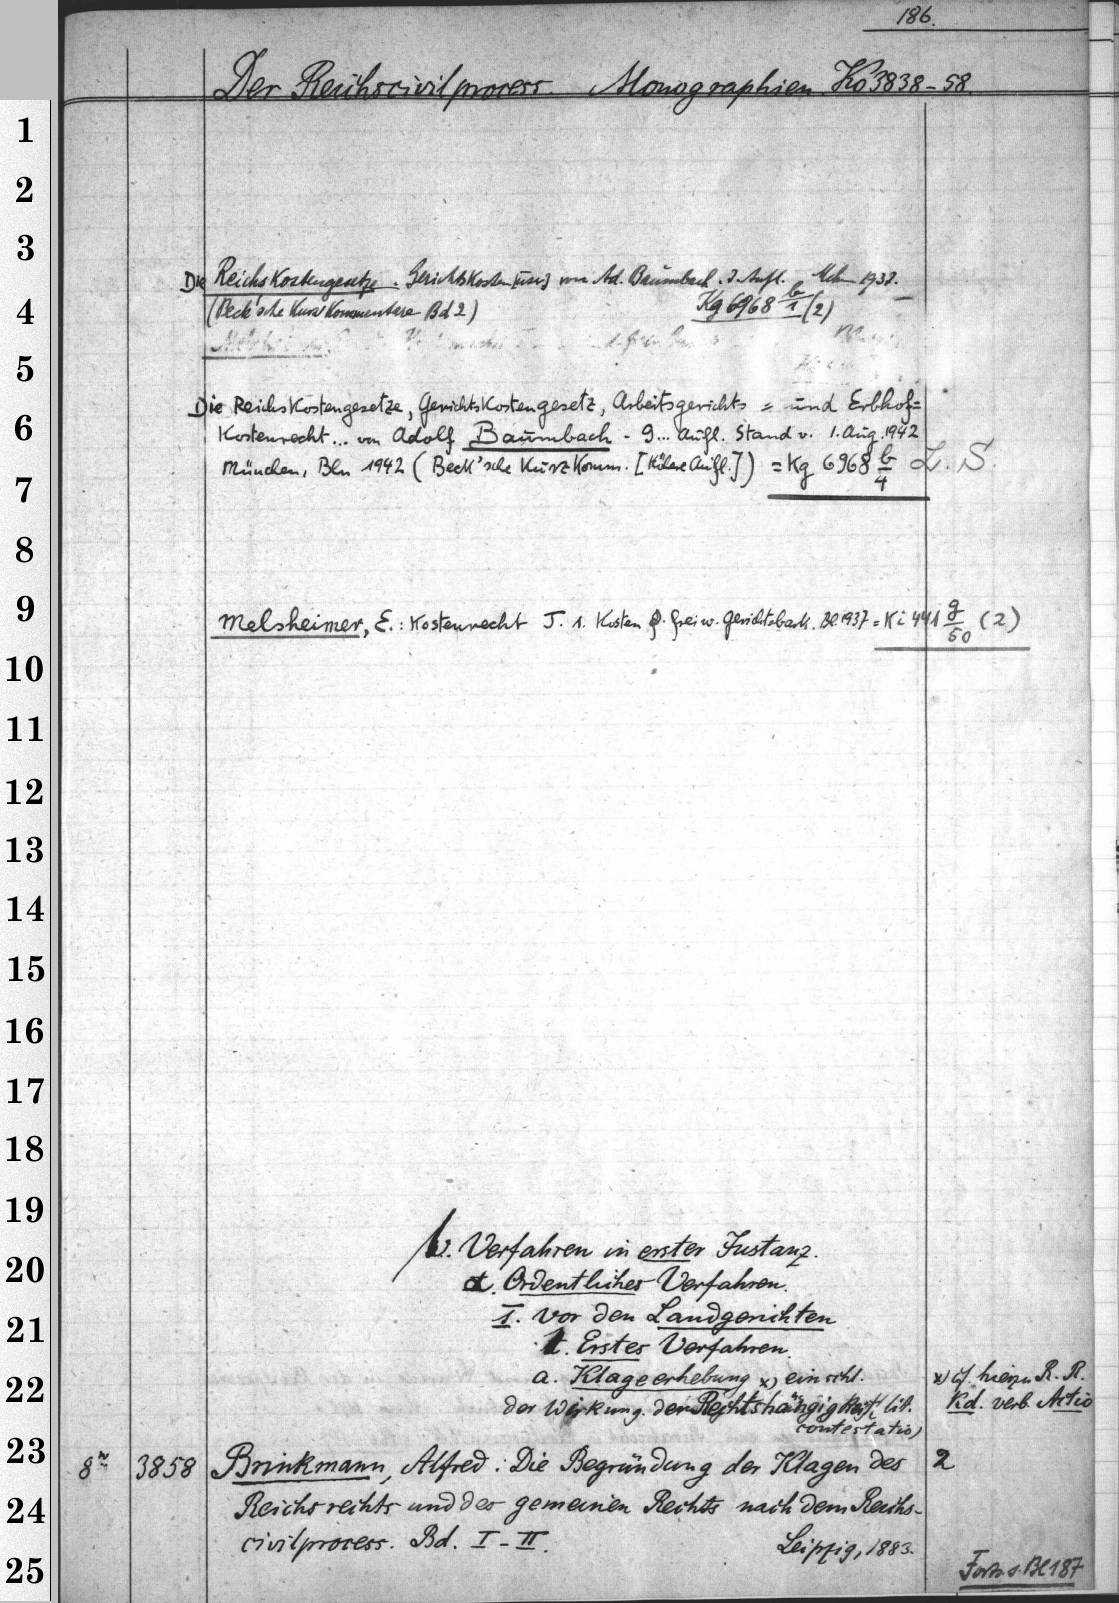 186.
Der Reichscivilprocess. Monographien. Ko 3838-58.
1
2
3
Die Reichskostengesetze. Gerichtskosten [usw] von Ad. Baumbach. Aufl. Mchn 1937.
4
(Beck'sche Kurz Kommentare Bd 2) Kg 6968 b/1 (2)
5
Die Reichskostengesetze, Gerichtskostengesetz, Arbeitsgerichts = und Erbhof=
6
Kostenrecht... von Adolf Baumbach - 9... Aufl. Stand v. 1. Aug. 1942
München, Bln 1942 (Beck'sche Kurz Komm. [Höhere Aufl.]) = Kg 6968 b/4 L. S.
7
8
9
Melsheimer, E.: Kostenrecht T. 1. Kosten d. freiw. Gerichtsbark. Bl. 1937 = Ki 441 g/50 (2)
10
11
12
13
14
15
16
17
18
19
b. Verfahren in erster Instanz.
20
α. Ordentliches Verfahren.
I. Vor den Landgerichten
21
1. Erstes Verfahren.
a. Klageerhebung x) einschl. x) cf. hierzu R. R.
22
der Wirkung der Rechtshängigkeit (lit. Kd. verb. Actio
contestatio)
23
8° 3858 Brinkmann, Alfred: Die Begründung der Klagen des 2
24
Reichsrechts und des gemeinen Rechts nach dem Reichs-
civilprocess. Bd. I-II. Leipzig, 1883.
25
Forts. s. Bl 187